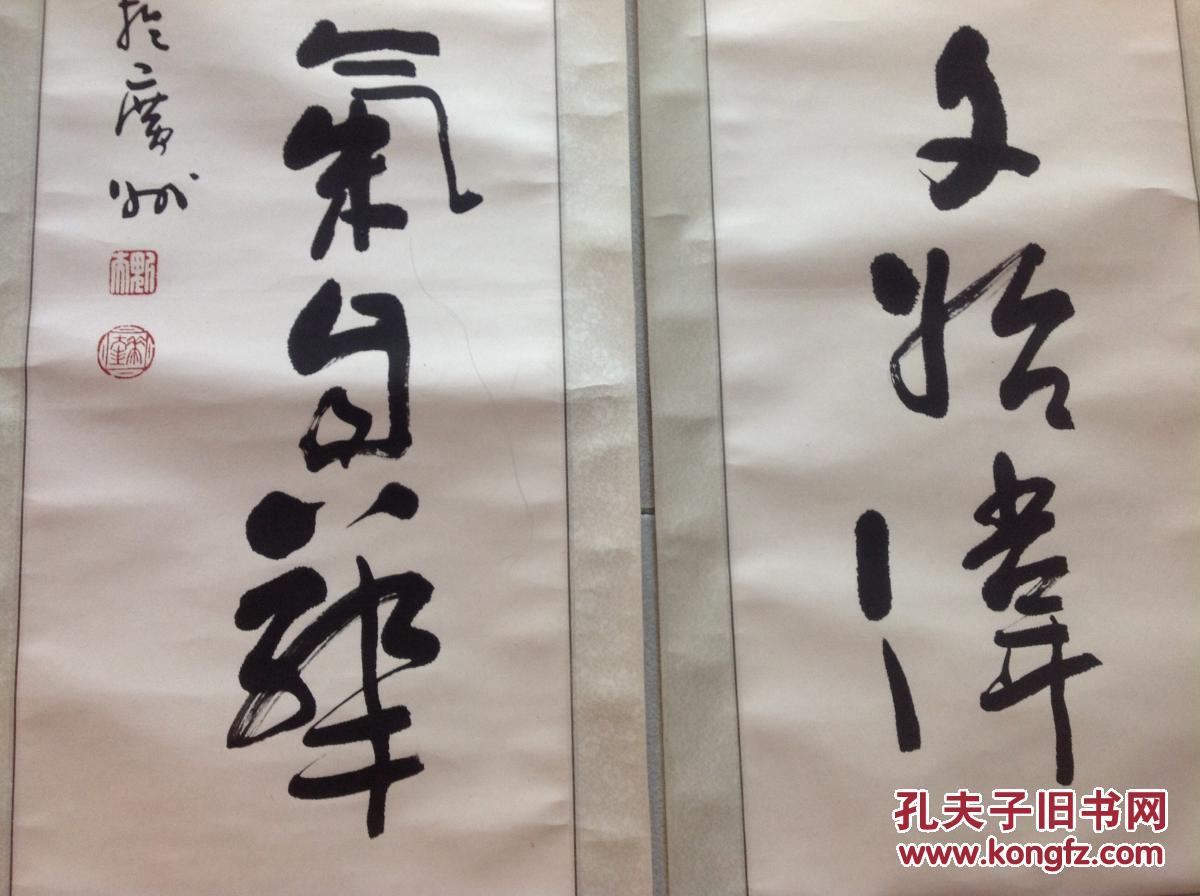 文始偉
氣自華
於廣州
孔夫子旧书网
www.kongfz.com